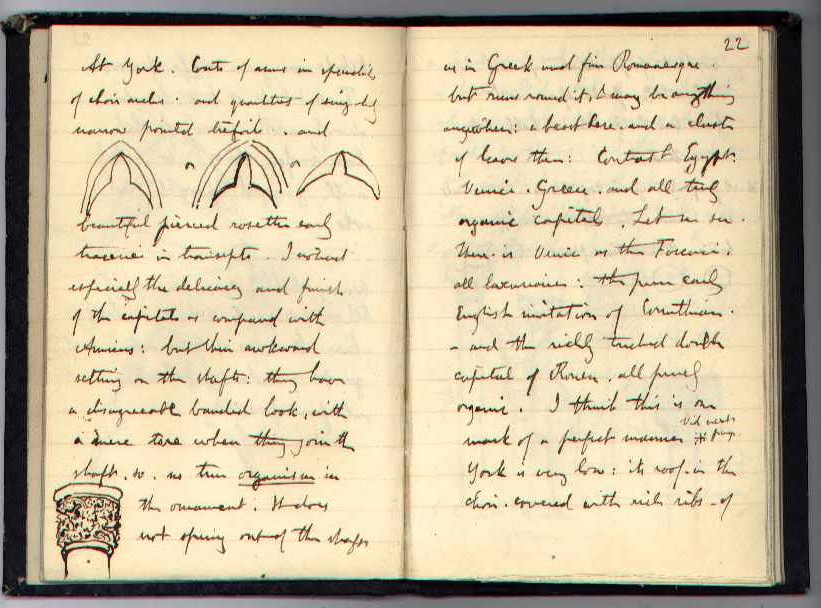 At York. Coats of arms in spandrils
of choir arches. and quantities of singularly
narrow pointed trefoils. and
beautiful pierced rosettes early
traceries in transepts. I noticed
especially the delicacy and finish
of the capitals as compared with
Amiens: but their awkward
setting on the shafts: they have
a disagreeable banded look, with
a mere tore where they join the
shaft. so. no true organism in
the ornament. It does
not spring out of the shafts
22
as in Greek and fine Romanesque.
but runs round it, & may be anything
anywhere: a beast here. and a cluster
of leaves there: Contrast Egypt.
Venice. Greece. and all truly
organic capitals. Let me see.
There is Venice as the Foscari.
all luxurious: the pure early
English imitation of Corinthian.
- and the richly trucked double
capital of Rouen. all purely
organic. I think this is one
mark of a perfect manner
Vid next
page
York is very low: its roof. in the
choir. covered with rich ribs - of